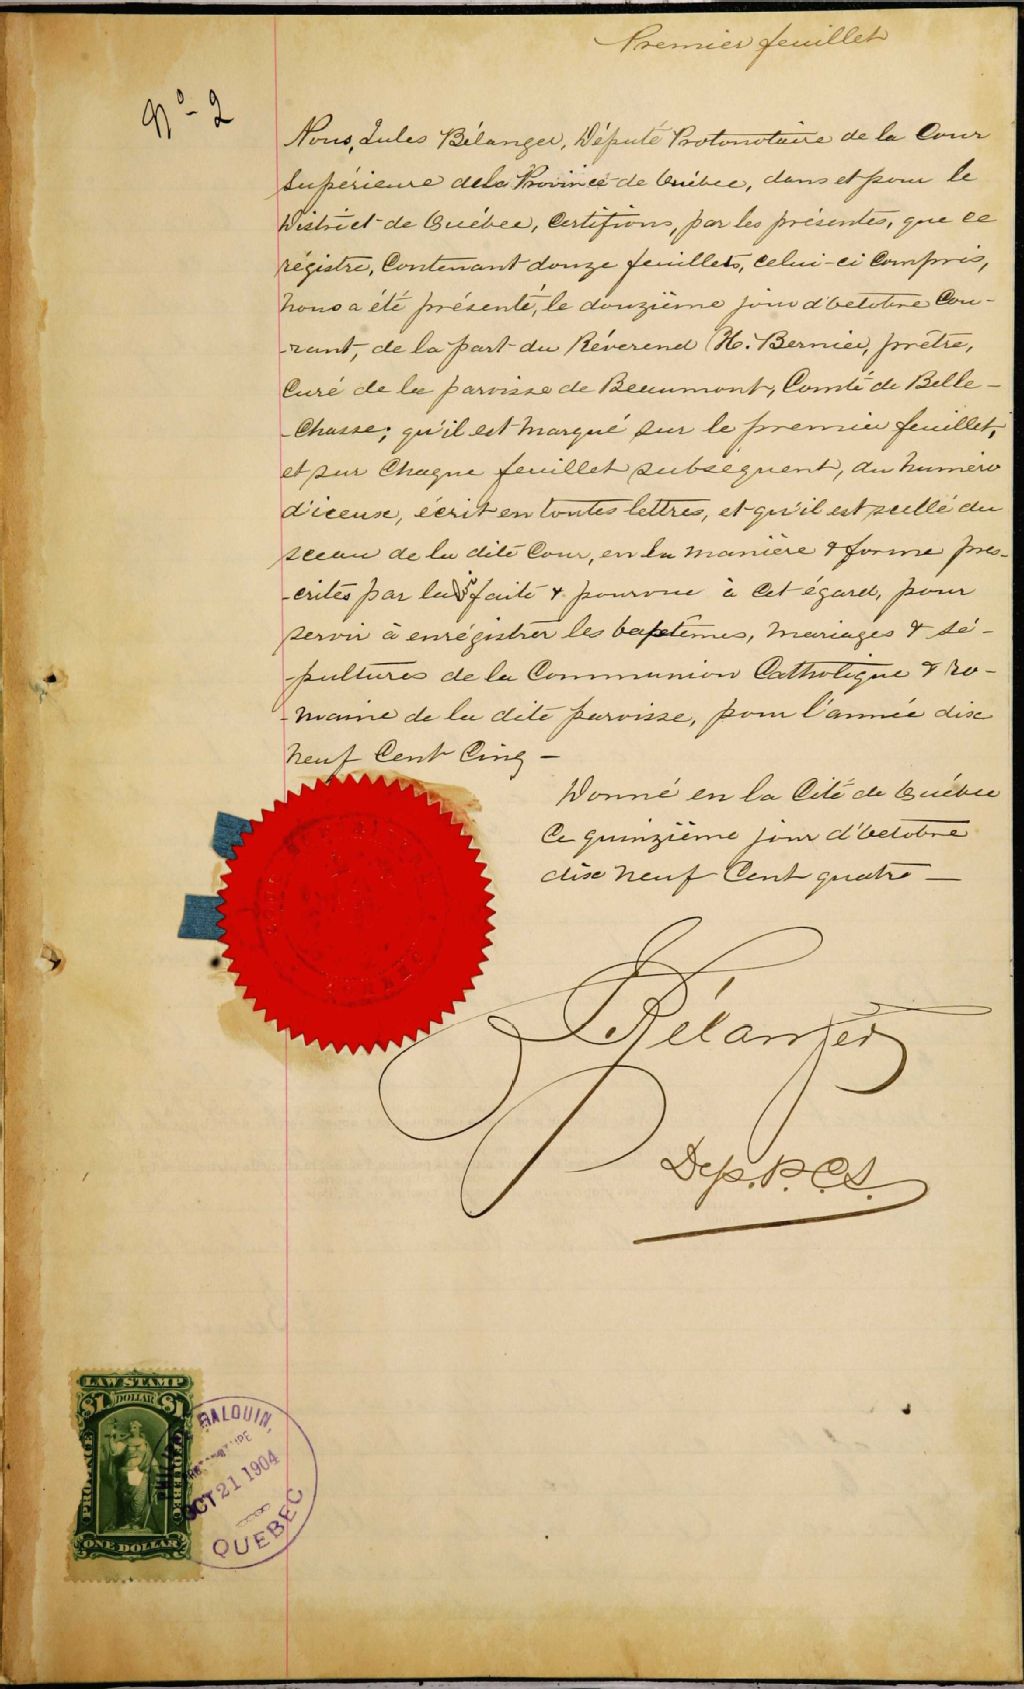 Premier feuillet
No- 2
Nous, Jules Bélanger, Député Protonotaire de la Cour
Supérieure de la Province de Québec, dans et pour le
District de Québec, Certifions, par les présentes, que ce
régistre, Contenant douze feuillets, celui-ci Compris,
nous a été présenté, le douzième jour d'octobre Cou-
-rant, de la part du Révérend H. Bernier, prêtre,
Curé de la paroisse de Beaumont, Comté de Belle-
-Chasse; qu'il est marqué sur le premier feuillet,
et sur Chaque feuillet subséquent, du numéro
d'iceux, écrit en toutes lettres, et qu'il est scellé du
sceau de la dite Cour, en la manière & forme pres-
-crites par la loi faite & pourvue à cet égard, pour
servir à enrégistrer les baptêmes, mariages & sé-
-pultures de la Communion Catholique & Ro-
-maine de la dite paroisse, pour l'année dix
neuf Cent Cinq -
Donné en la Cité de Québec
Ce quinzième jour d'Octobre
dix neuf Cent quatre -
J Bélanger
Dep. P. C. S.
QUEBEC
LAW STAMP
$1 DOLLAR $1
PROVINCE OF QUEBEC
ONE DOLLAR
MALOUIN
OCT 21 1904
QUEBEC